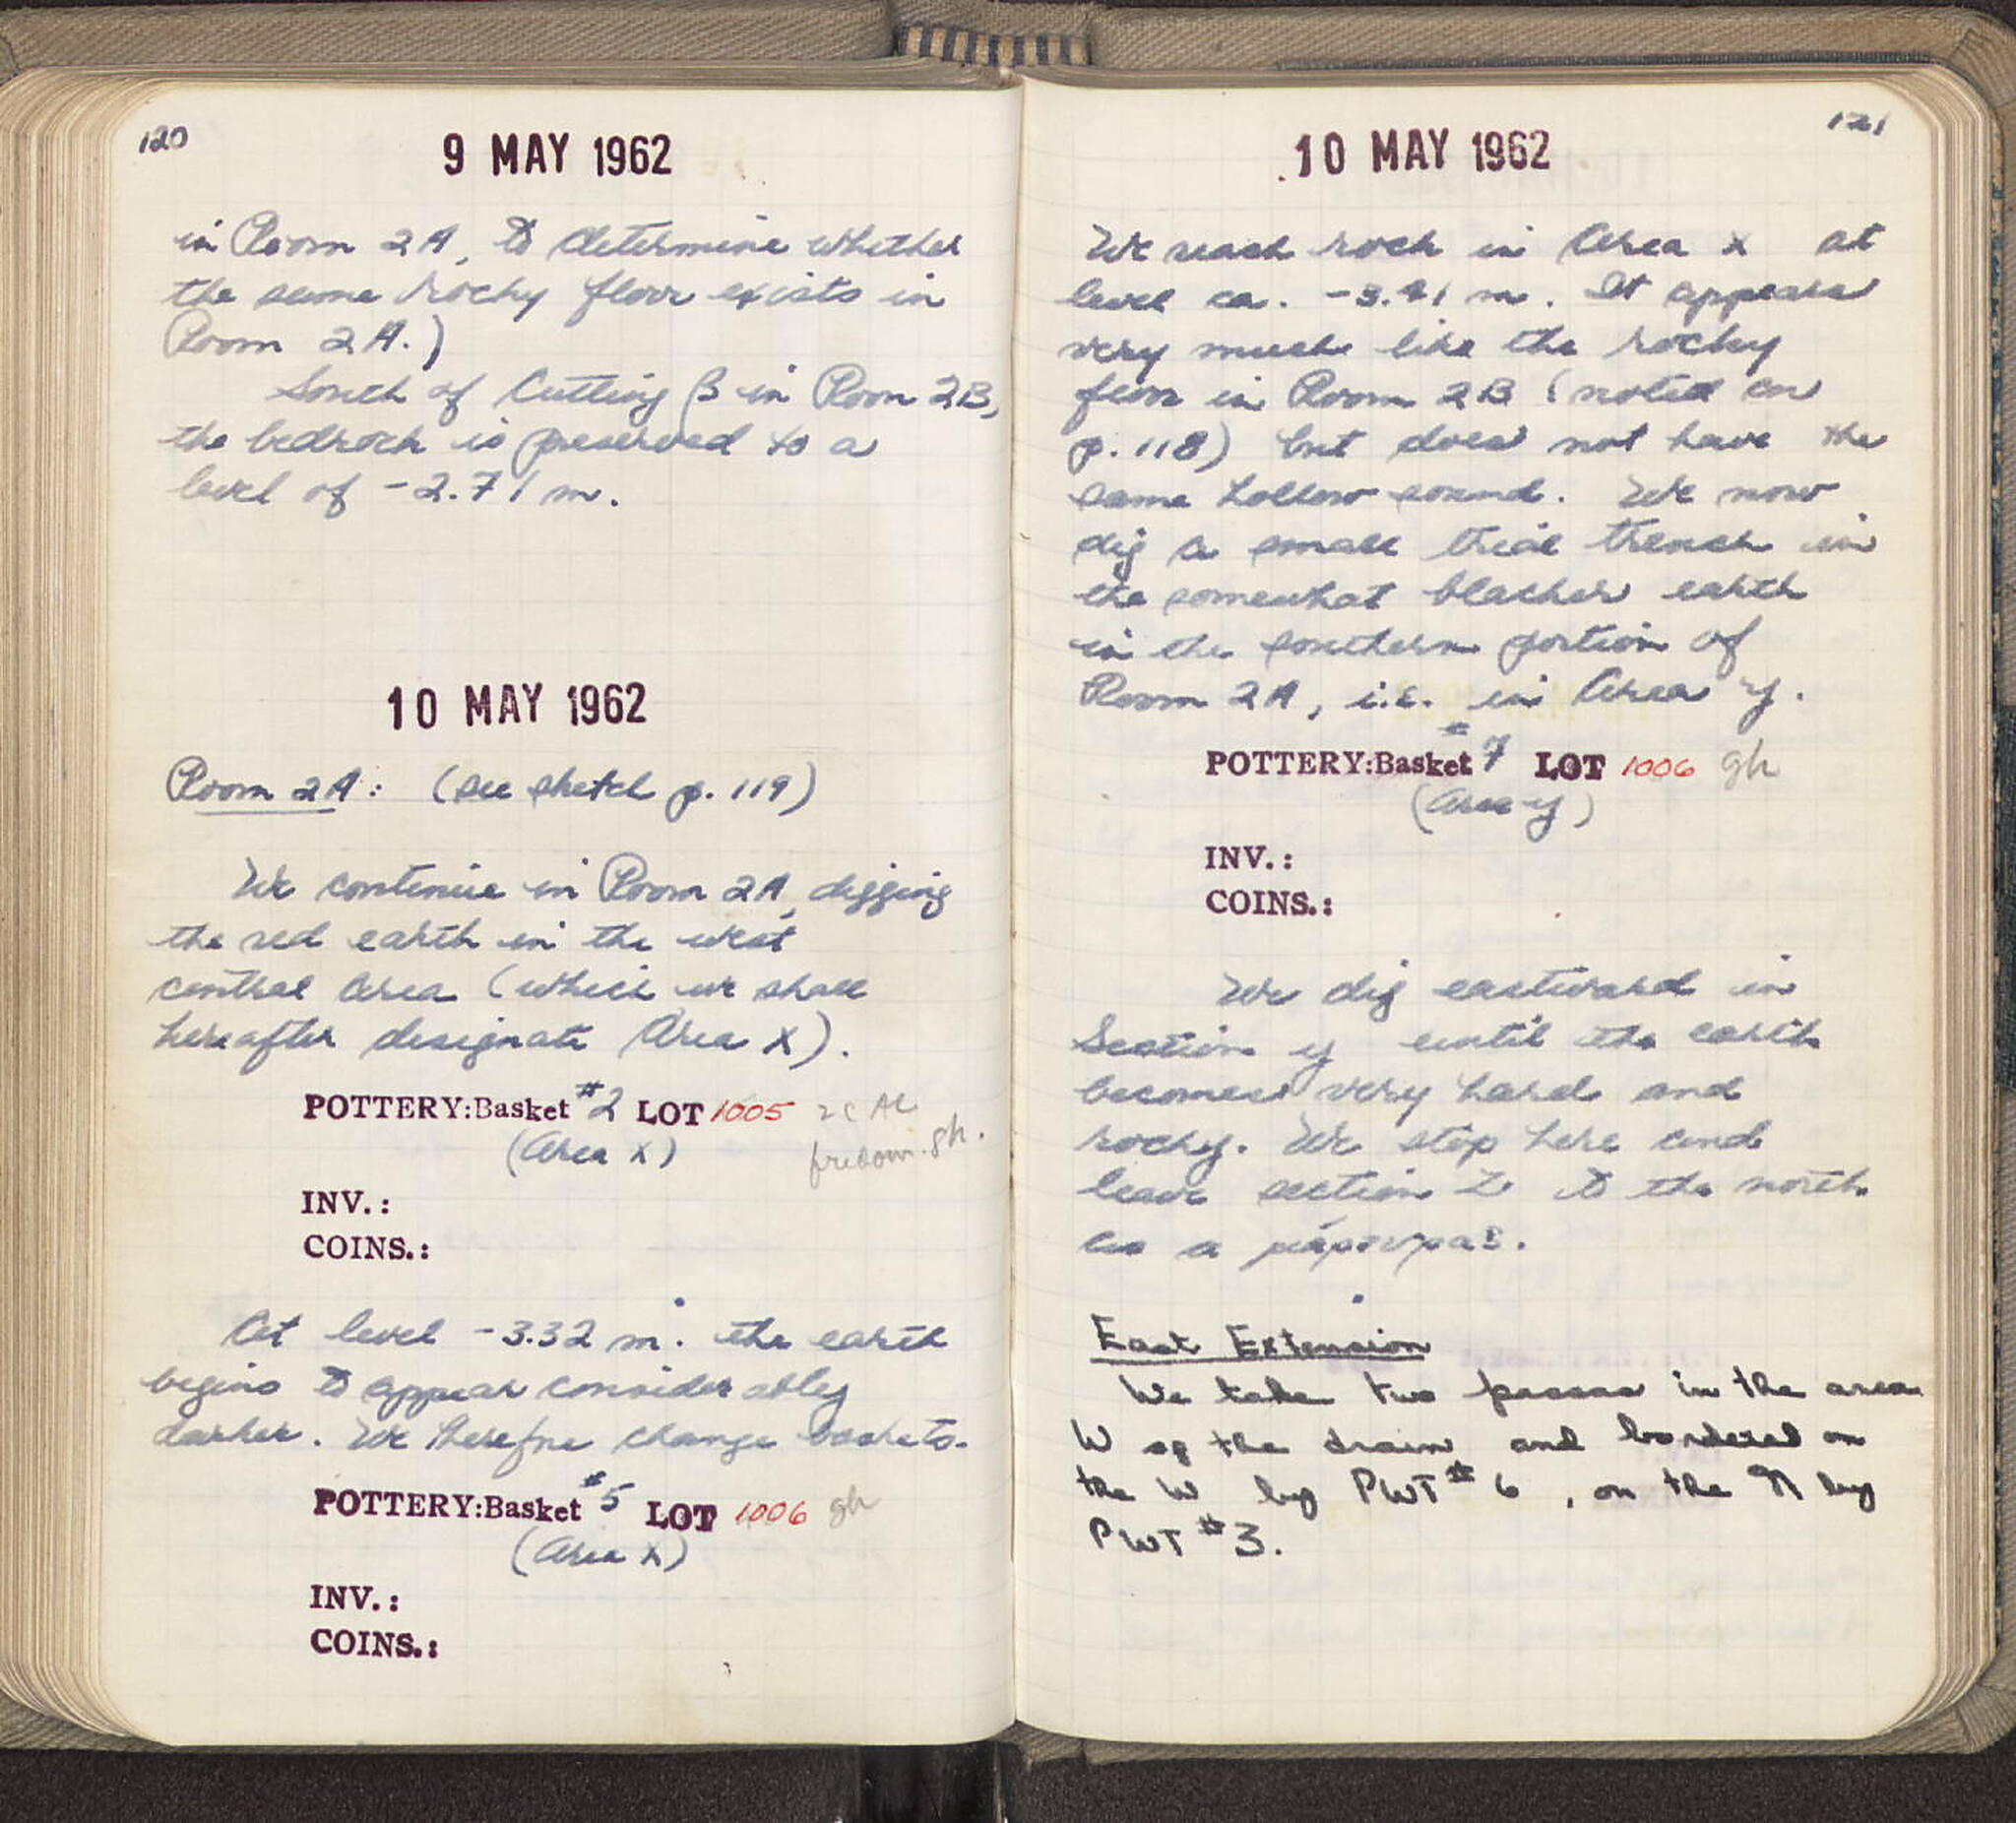 120
9 MAY 1962
in Room 2A, to determine whether
the same rocky floor exists in
Room 2A.)
South of Cutting β in Room 2B,
the bedrock is preserved to a
level of -2.71 m.
10 MAY 1962
Room 2A: (see sketch p. 119)
We continue in Room 2A, digging
the red earth in the west
central area (which we shall
hereafter designate Area X).
POTTERY:Basket #2 LOT 1005 2C AC
(Area X) predom. gh.
INV.:
COINS.:
At level -3.32 m. the earth
begins to appear considerably
darker. We therefore change baskets.
POTTERY:Basket #5 LOT 1006 gh
(Area X)
INV.:
COINS.:
121
10 MAY 1962
We reach rock in Area X at
level ca. m. It appears
very much like the rocky
floor in Room 2B (noted on
p. 118) but does not have the
same hollow sound. We now
dig a small trial trench in
the somewhat blacker earth
in the southern portion of
Room 2A, i.e. in Area y.
POTTERY:Basket #7 LOT 1006 gh
(Area y)
INV.:
COINS.:
We dig eastward in
Section y until the earth
becomes very hard and
rocky. We stop here and
leave section Z to the north
as a μάρτυρας.
East Extension
We take two passes in the area
W of the drain and bordered on
the W by PWT #6, on the N by
PWT #3.